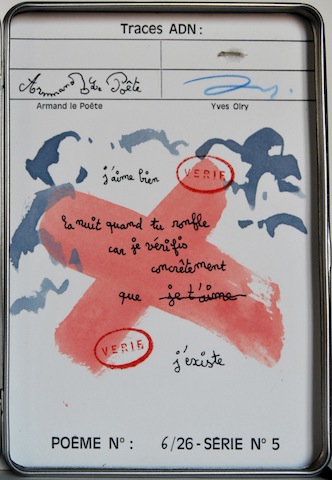 Traces ADN :
Armand Le Poête
Armand le Poête
Yves Olry
j'aime bien
VERIE
la nuit quand tu ronfle
car je vérifis
concrêtement
que je t'aime
VERIE
j'existe
POÈME N° : 6/26 - SÉRIE N° 5